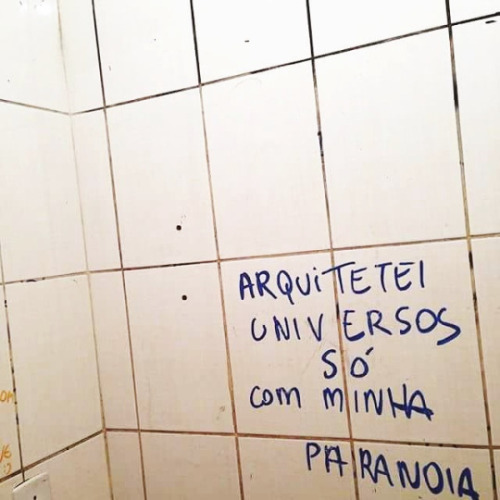 ARQUiTETEI
UNIVERSOS
SÓ
com MINHA
PARANOIA